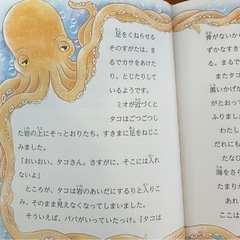 足をくねらせる
そのすがたは、ま
るでカサをあけた
り、とじたりして
いるようです。
ミオが近づくと
タコはごつごつし
た岩の上にそっとおりたち、すきまに足をねじこ
みました。
「おいおい、タコさん。さすがに、そこには入れ
ないよ」
ところが、タコは岩のあいだにするりと入りこ
み、そのまま見えなくなってしまいました。
そういえば、パパがいっていたっけ。『タコは
骨がないから
ずかなすきま
る。まるで
黒いかげが
ふりました
だれにも
海をさら